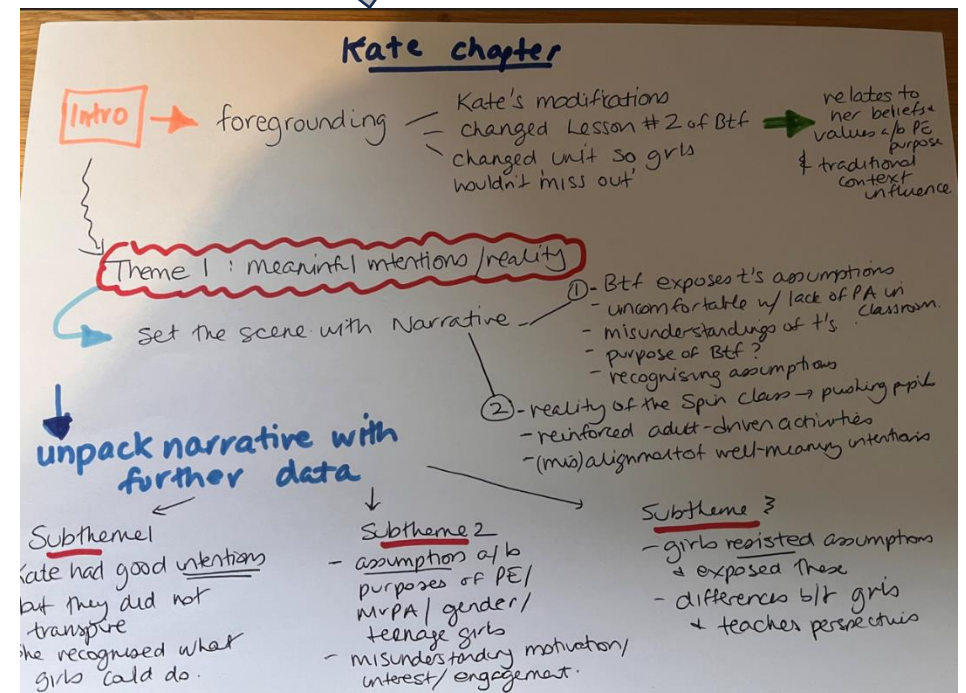 Kate chapter
Intro
foregrounding
Kate's modifications
changed Lesson #2 of Btf
changed unit so grls
wouldn't 'miss out'
relates to
her beliefs &
values a/b PE
purpose
& traditional
context
influence
Theme 1 : meaninfl intentions / reality
set the scene with Narrative
① - Btf exposes t's assumptions
- uncomfortable w/ lack of PA in
classroom.
- misunderstandings of t's.
- purpose of Btf ?
- recognising assumptions
② - reality of the Spin class → pushing pupils
- reinforced adult-driven activities
- (mis)alignment of well-meaning intentions
unpack narrative with
further data
Subtheme 1
Kate had good intentions
but they did not
transpire
She recognised what
girls could do.
Subtheme 2
- assumption a/b
purposes of PE /
MVPA / gender /
teenage girls
- misunderstanding motivation /
interest / engagement.
Subtheme 3
- girls resisted assumptions
& exposed these
- differences b/t grls
& teaches perspectives